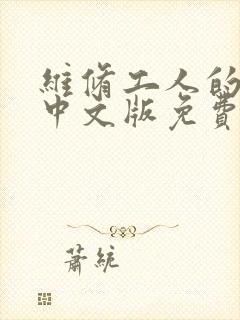 維脩工人的
中文版免費
蕭統